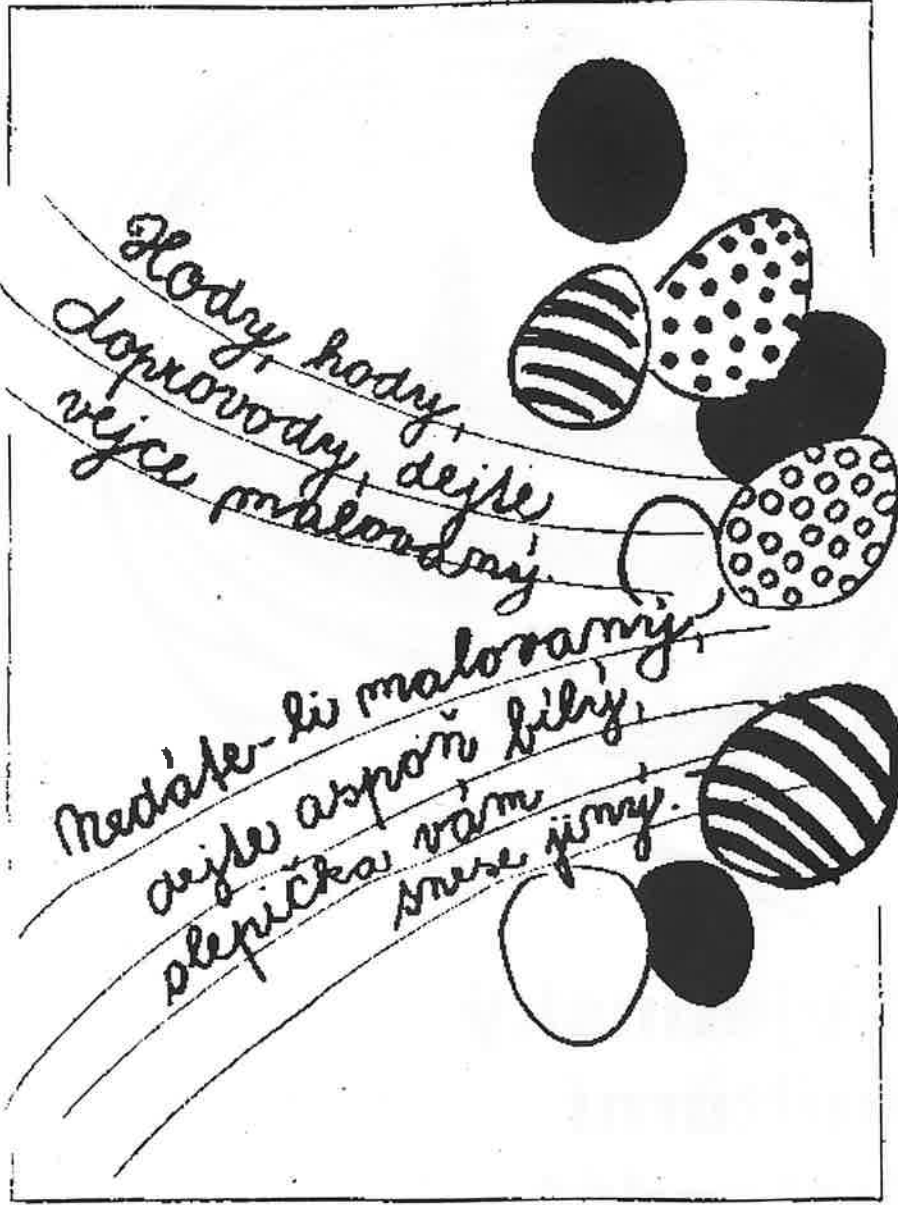 Hody, hody,
doprovody, dejte
vejce malovaný.
Nedáte-li malovaný,
dejte aspoň bílý,
slepička vám
snese jiný.